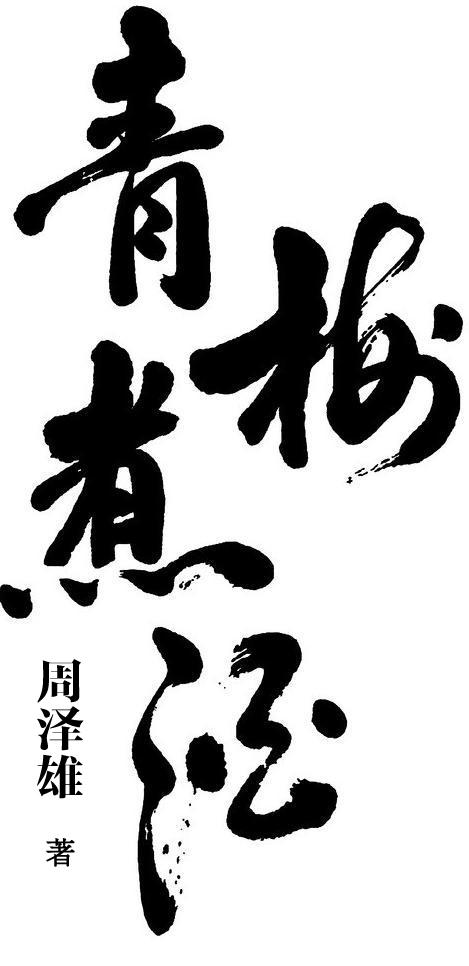 青梅煮酒
周泽雄
著